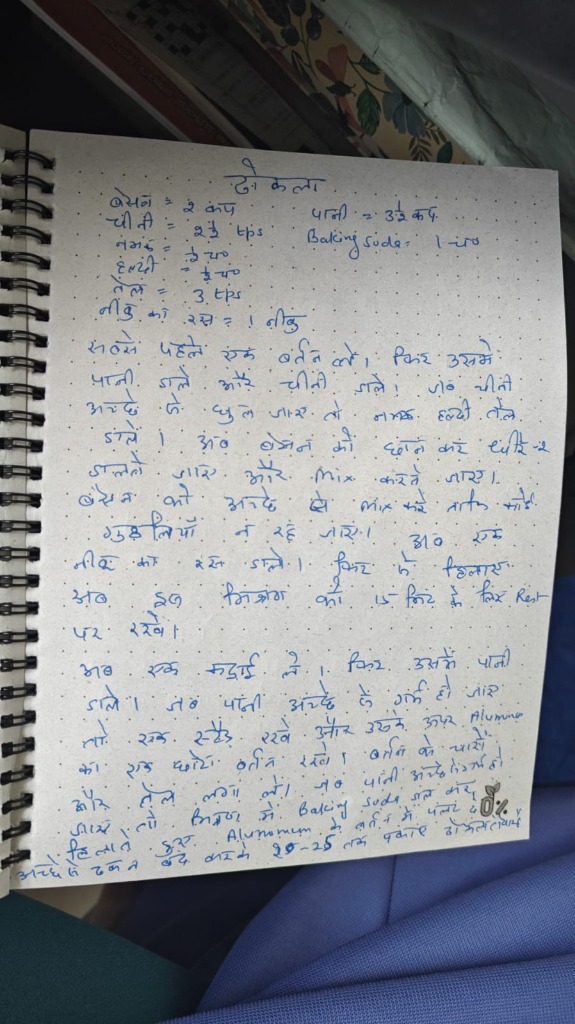 ढोकला
बेसन = २ कप
चीनी = 2 1/2 tps
नमक = 1/2 च०
हल्दी = 1/2 च०
तेल = 3 tps
नीबु का रस = 1 नीबु
पानी = 3 1/2 कप
Baking Soda = 1 च०
सबसे पहले एक बर्तन ले। फिर उसमे
पानी डाले और चीनी डाले। जब चीनी
अच्छे से घुल जाए तो नमक हल्दी तेल
डाले। अब बेसन को छान कर धीरे-२
डालते जाए और Mix करते जाए।
बेसन को अच्छे से Mix करे ताकि कोई
गुठलियाँ न रह जाए। अब एक
नीबु का रस डाले। फिर से हिलाए
अब इस मिश्रण को 15 मिंट के लिए Rest
पर रखे।
अब एक कढ़ाई ले। फिर उसमें पानी
डाले। जब पानी अच्छे से गर्म हो जाए
तो एक स्टैंड रखे और उसके ऊपर Alumunum
का एक छोटा बर्तन रखे। बर्तन के चारो
और तेल लगा ले। जब पानी अच्छे से गर्म हो
जाए तो मिश्रण में Baking Soda डाल कर
हिलाते हुए Alumomum के बर्तन में पलट दे
अच्छे से ढकन बंद करके 20-25 तक पकाए ढोकला तैयार